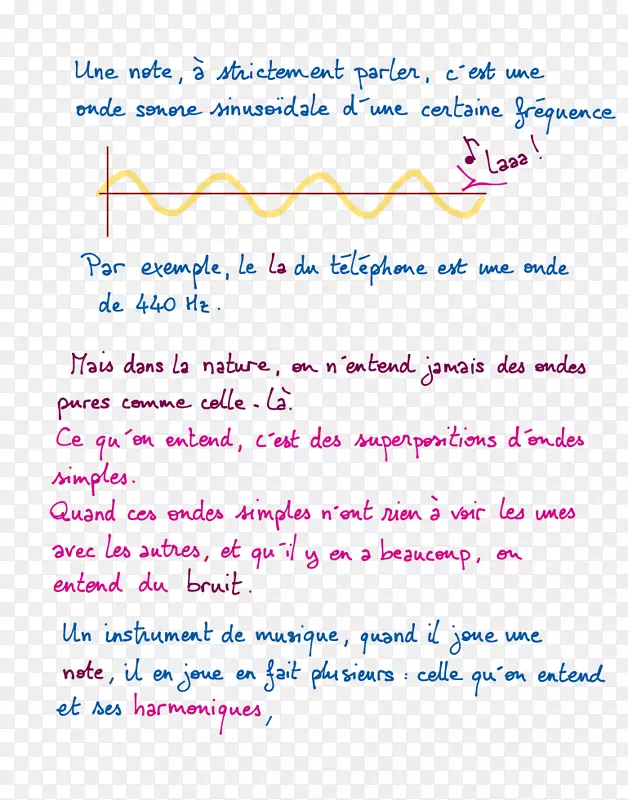 Une note, à strictement parler, c'est une
onde sonore sinusoïdale d'une certaine fréquence
Laaa !
Par exemple, le la du téléphone est une onde
de 440 Hz.
Mais dans la nature, on n'entend jamais des ondes
pures comme celle-là.
Ce qu'on entend, c'est des superpositions d'ondes
simples.
Quand ces ondes simples n'ont rien à voir les unes
avec les autres, et qu'il y en a beaucoup, on
entend du bruit.
Un instrument de musique, quand il joue une
note, il en joue en fait plusieurs : celle qu'on entend
et ses harmoniques,